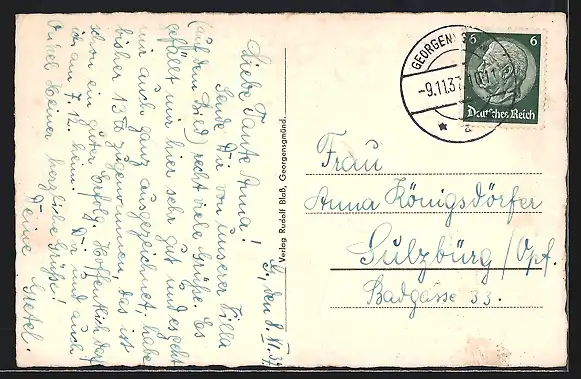 G., den 8. XI. 37.
Liebe Tante Anna!
Sende Dir von unserer Villa
(auf dem Bild) recht viele Grüße. Es
gefällt mir hier sehr gut und es geht
mir auch ganz ausgezeichnet, habe
bisher 13 ℔ zugenommen, das ist
schon ein guter Erfolg. Hoffentlich darf
ich am 7. 12. heim. Dir und auch
Onkel Heiner herzliche Grüße!
Deine Gretel.
Verlag Rudolf Blaß, Georgensgmünd.
GEORGENSG
-9.11.37
a
6 6
Deutsches Reich
Frau
Anna Königsdörfer
Sulzbürg/Opf.
Badgasse 33.